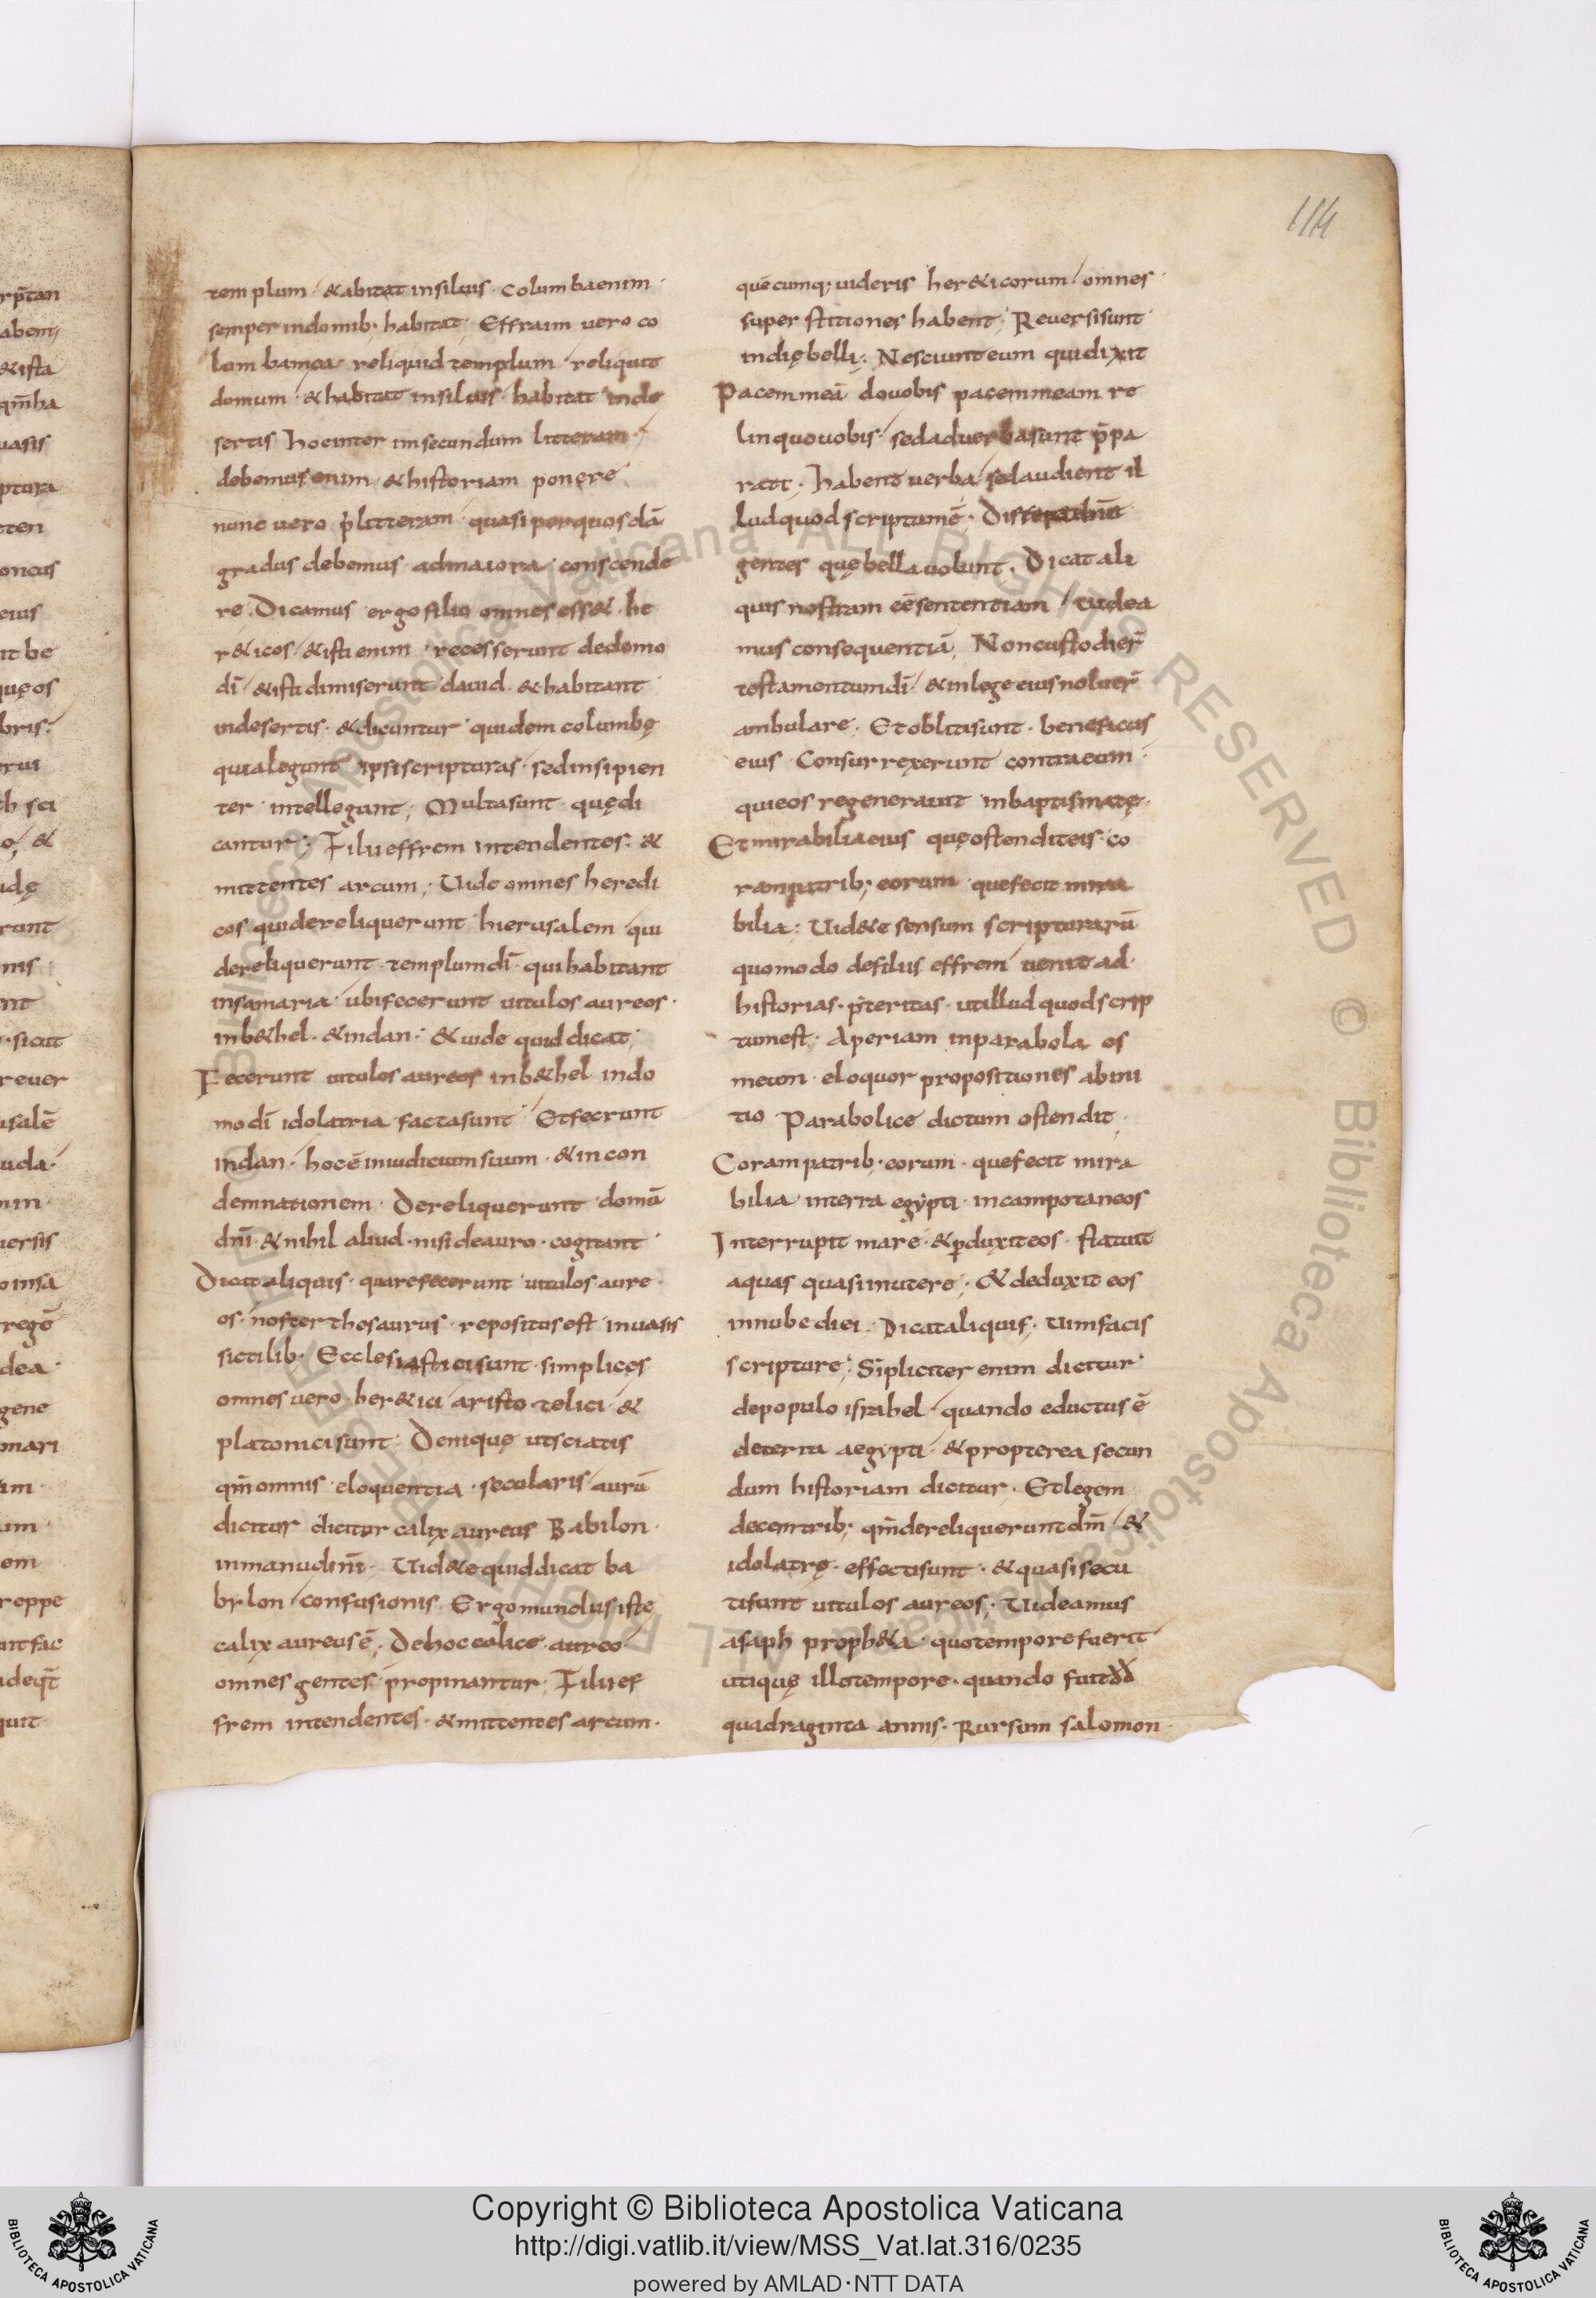 114
templum · &abitat insiluis · Columbaenim ·
semper indomib; habitat ; Effraim uero co
lom bamea reliquid templum · reliquit
domum · & habitat insiluis · habitat inde
sertis hocinter im secundum litteram ·
debemus enim & historiam ponere
nunc uero p̄ litteram · quasi per quosdā
gradus debemus · admaiora · conscende
re . Dicamus ergo filio omnes ess& · he
r&icos / & isti enim · recesserunt dedomo
dī / & isti dimiserunt dauid · & habitant
indesertis · & dicuntur quidem columbę
quia legunt ipsi scripturas · sed insipien
ter · intellegunt ; Multa sunt · quę di
cantur · Filii effrem intendentes : &
mittentes arcum ; Uide omnes heredi
cos qui dereliquerunt hierusalem / qui
dereliquerunt · templum dī · qui habitant
insamaria · ubi fecerunt uitulos aureos ·
inb&hel · & indan : & uide quid dicat ;
Fecerunt uitulos aureos inb&hel indo
mo dī idolatria factasunt / Et fecrunt
indan · hoc ē iniudicium suum · & in con
demnationem · Dereliquerunt domū
dn̄i · & nihil aliud · nisi deauro · cogitant
Dicit aliquis · quare fecerunt uitulos aure
os · noster thesaurus · repositus est inuasis
sictilib · Ecclesiastici sunt · simplices
omnes uero · her&ici / aristo · telici / &
platonici sunt · Denique ut sciatis
qm̄ omnis eloquentia · secularis / aurū
dicitur dicitur calix aureus Babilon ·
inmanu dn̄i · Uid&e quid dicat ba
bylon / confusionis · Ergo mundus iste
calix aureus ē ; De hoc calice · aureo
omnes gentes · propinantur ; Filii ef
frem intendentes · & mittentes arcum ·
quēcumq; uideris her&icorum / omnes ·
super stitiones habent ; Reuersi sunt
indię belli ; Nesciunt eum qui dixit
Pacem meā do uobis pacem meam re
linquo uobis · / sed ad uerba sunt p̄ pa
rati ; habent uerba / sed audient il
lud quod scriptum ē ·
gentes quę bella uolunt · Dicat ali
quis nostram eē sententiam / uidea
mus consequentiā ; Non custodier̄
testamentum dī / & in lege eius noluer̄
ambulare · Et obliti sunt · beneficius
eius · Consurrexerunt contra eum ·
qui eos regenerauit in baptismatę ·
Et mirabilia eius quę ostendit eis · co
ram patrib; eorum quefecit mira
bilia : Uid&e sensum scripturarū
quomodo de filiis effrem uenit ad ·
historias · p̄teritas · ut illud quod scrip
tum est · Aperiam inparabola os
meum · eloquor propositiones ab ini
tio Parabolice dictum ostendit ;
Coram patrib · eorum · quefecit mira
bilia interra egẏpti · in campotaneos
Interrupit mare · & p̱duxit eos · statuit
aquas quasi inutere ; & deduxit eos
innube diei . Dicat aliquis · uim facis
scripture ; Sīpliciter enim dicitur ·
depopulo israhel / quando eductus ē
deterra aegypti · & propterea secun
dum historiam dicitur · Et legem
decemtrib; qm̄ dereliquerunt dn̄ / &
idolatrę · effecti sunt · & quasi secu
ti sunt uitulos aureos ; Uideamus
asaph proph&a · quo tempore fuerit
utiquę illo tempore · quando fuit dd
quadraginta annis · Rursum salomon
rp̄tan
abem;
& ista
qm̄ha
uasis
ptura
oncus
eius
ut be
quęos
bris ·
rui
th sci
o, &
idę
runt
nis
nt
· sicut
reuer
usalē
uda ·
uersis
o insa
regē
dea ·
gene
onari
am ·
um ·
em
reppe
ideqt̄
quit
© Biblioteca Apostolica Vaticana ALL RIGHTS RESERVED
Copyright © Biblioteca Apostolica Vaticana
http://digi.vatlib.it/view/MSS_Vat.lat.316/0235
powered by AMLAD·NTT DATA
BIBLIOTECA APOSTOLICA VATICANA
BIBLIOTECA APOSTOLICA VATICANA